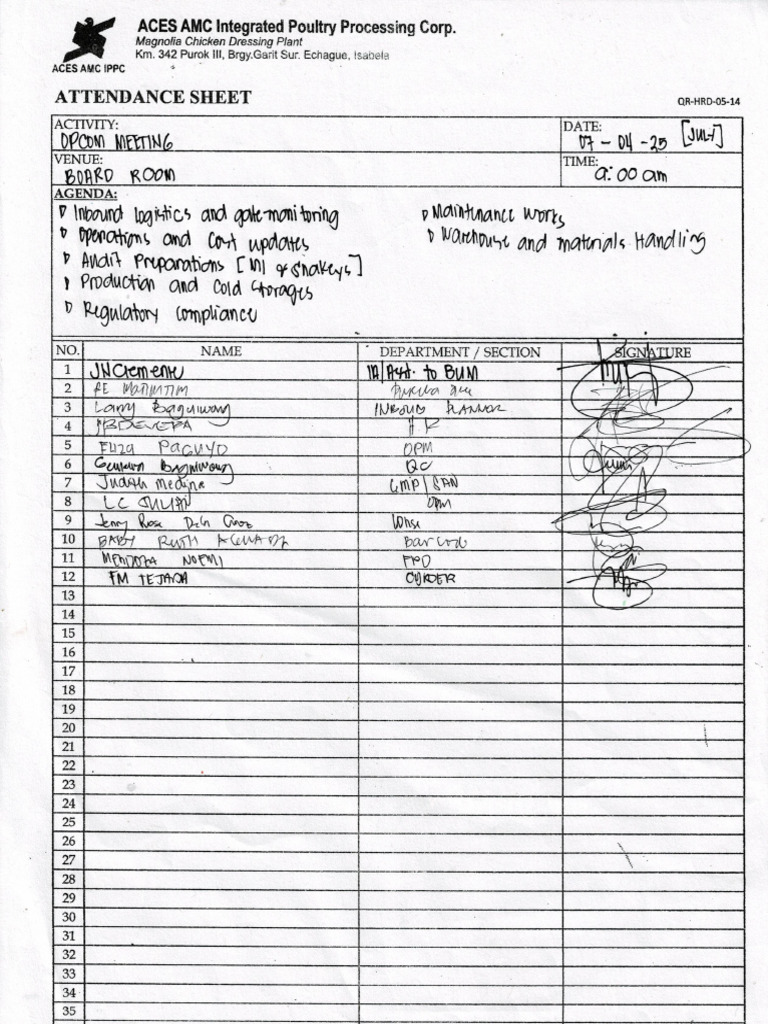 ACES AMC Integrated Poultry Processing Corp.
Magnolia Chicken Dressing Plant
Km. 342 Purok III, Brgy.Garit Sur. Echague, Isabela
ACES AMC IPPC
ATTENDANCE SHEET
QR-HRD-05-14
ACTIVITY: OPCOM MEETING
DATE: 07-04-25 [JULY]
VENUE: BOARD ROOM
TIME: 9:00 am
AGENDA:
Inbound logistics and gate monitoring
Operations and cost updates
Audit Preparations [MI & Shakeys]
Production and Cold Storages
Regulatory compliance
Maintenance works
Warehouse and materials Handling
NO. NAME DEPARTMENT / SECTION SIGNATURE
1 JNClemente IA/Asst. to BUM
2
3 Larry Baguiwong INBOUND PLANNER
4 HR
5 PAGUYO OPM
6 Baguiwong QC
7 Judith Medina GMP/SAN
8 LC JULIAN OPM
9 Jenny Rose Dela Cruz
10 BABY RUTH
11 MENDOZA NOEMI FPD
12 FM TEJADA
13
14
15
16
17
18
19
20
21
22
23
24
25
26
27
28
29
30
31
32
33
34
35